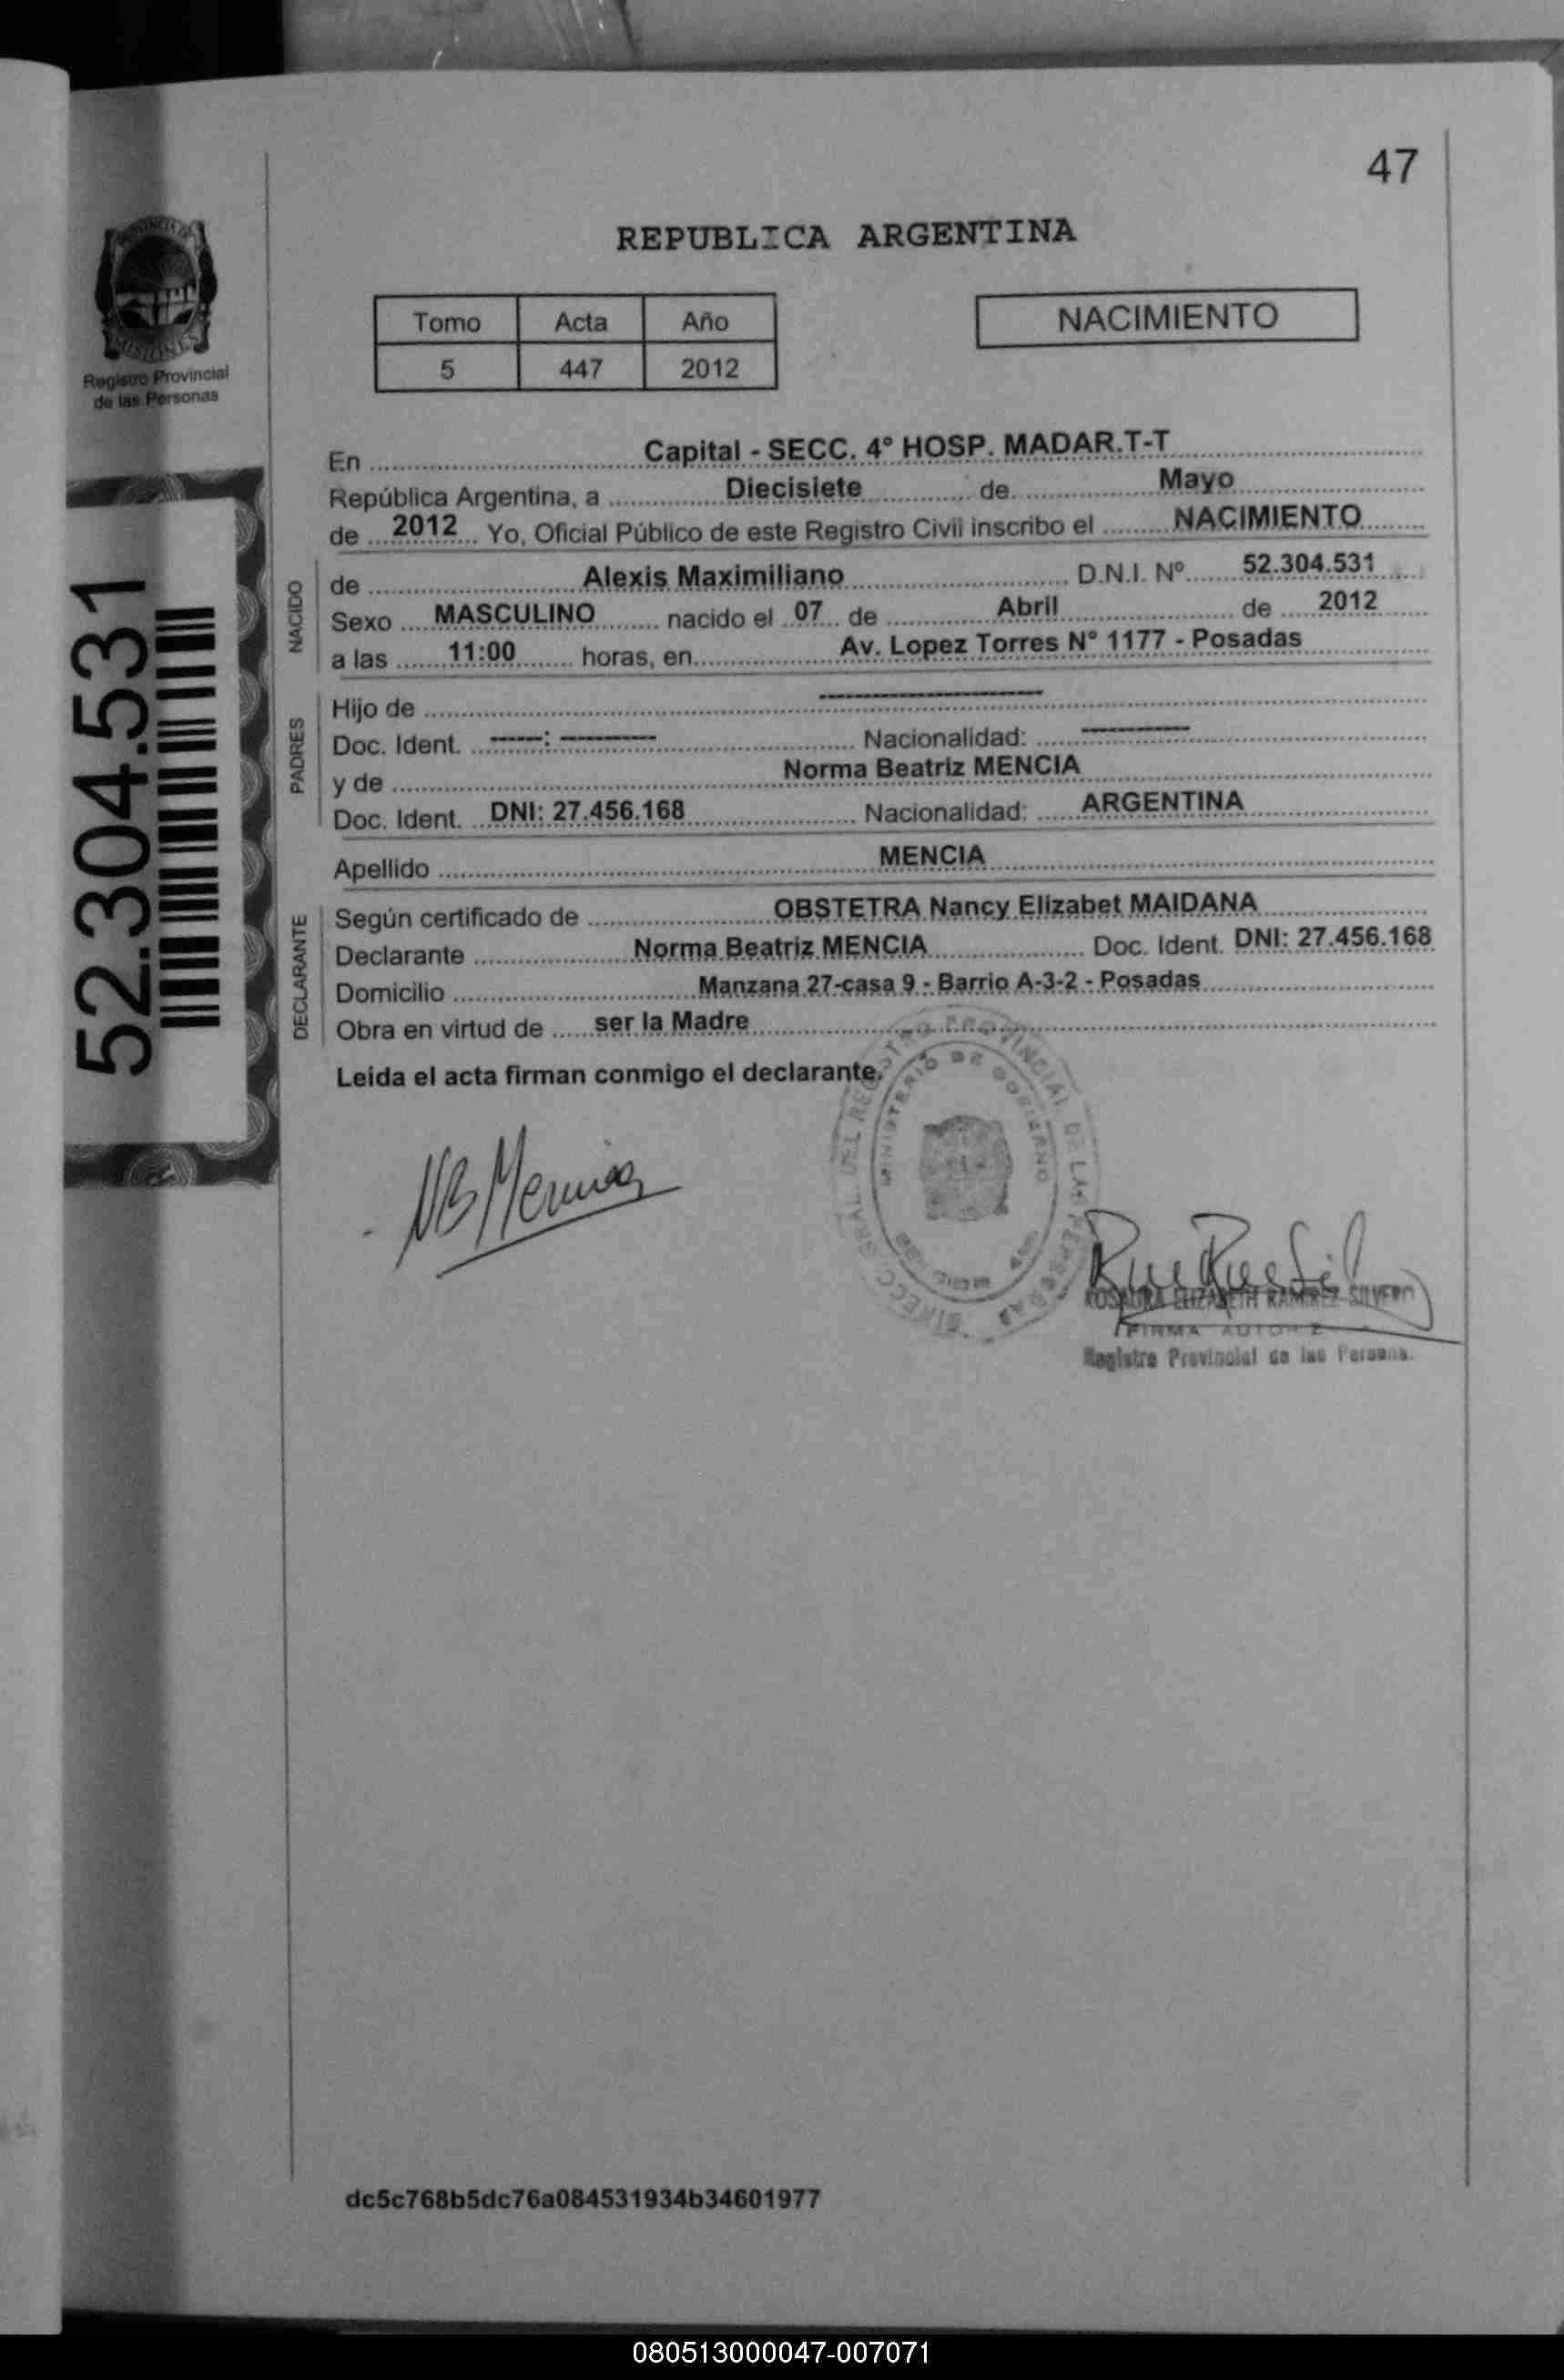 47
PROVINCIA DE
MISIONES
Registro Provincial
de las Personas
REPUBLICA ARGENTINA
Tomo Acta Año
5 447 2012
NACIMIENTO
En Capital - SECC. 4° HOSP. MADAR.T-T
República Argentina, a Diecisiete de Mayo
de 2012 Yo, Oficial Público de este Registro Civil inscribo el NACIMIENTO
NACIDO
de Alexis Maximiliano D.N.I. Nº 52.304.531
Sexo MASCULINO nacido el 07 de Abril de 2012
a las 11:00 horas, en Av. Lopez Torres N° 1177 - Posadas
PADRES
Hijo de ----------
Doc. Ident. -----: -------- Nacionalidad: --------
y de Norma Beatriz MENCIA
Doc. Ident. DNI: 27.456.168 Nacionalidad: ARGENTINA
Apellido MENCIA
DECLARANTE
Según certificado de OBSTETRA Nancy Elizabet MAIDANA
Declarante Norma Beatriz MENCIA Doc. Ident. DNI: 27.456.168
Domicilio Manzana 27-casa 9 - Barrio A-3-2 - Posadas
Obra en virtud de ser la Madre
Leida el acta firman conmigo el declarante.
52.304.531
NB Mencia
DIRECC. GRAL. DEL REGISTRO PROVINCIAL DE LAS PERSONAS
MINISTERIO DE GOBIERNO
ROSAURA ELIZABETH RAMIREZ SILVERO
FIRMA
Registro Provincial de las Persona.
dc5c768b5dc76a084531934b34601977
080513000047-007071